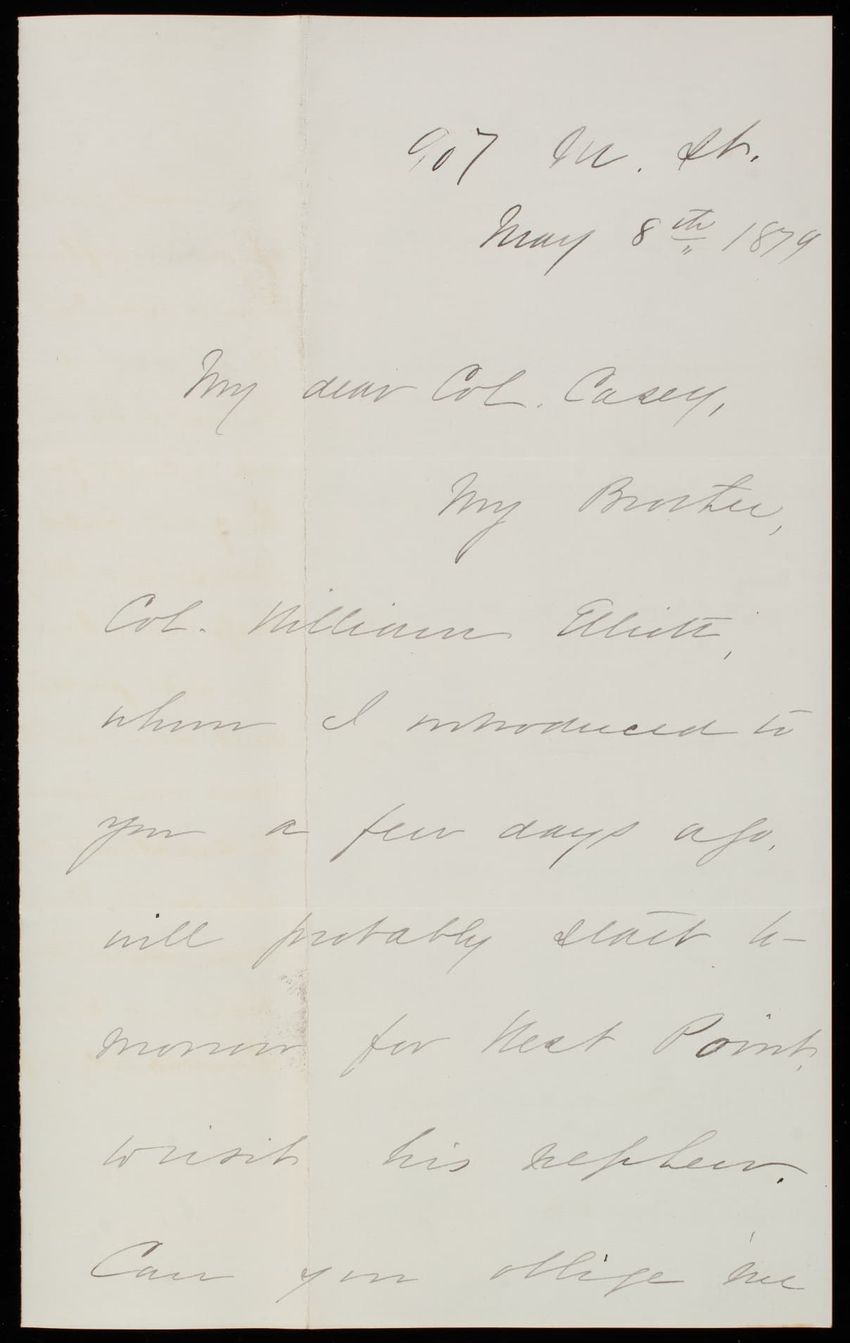 907 M. St.
May 8th 1879
My dear Col. Casey,
My Brother,
Col. William Elliott,
whom I introduced to
you a few days ago,
will probably start to-
morrow for West Point,
to visit his nephew.
Can you oblige me